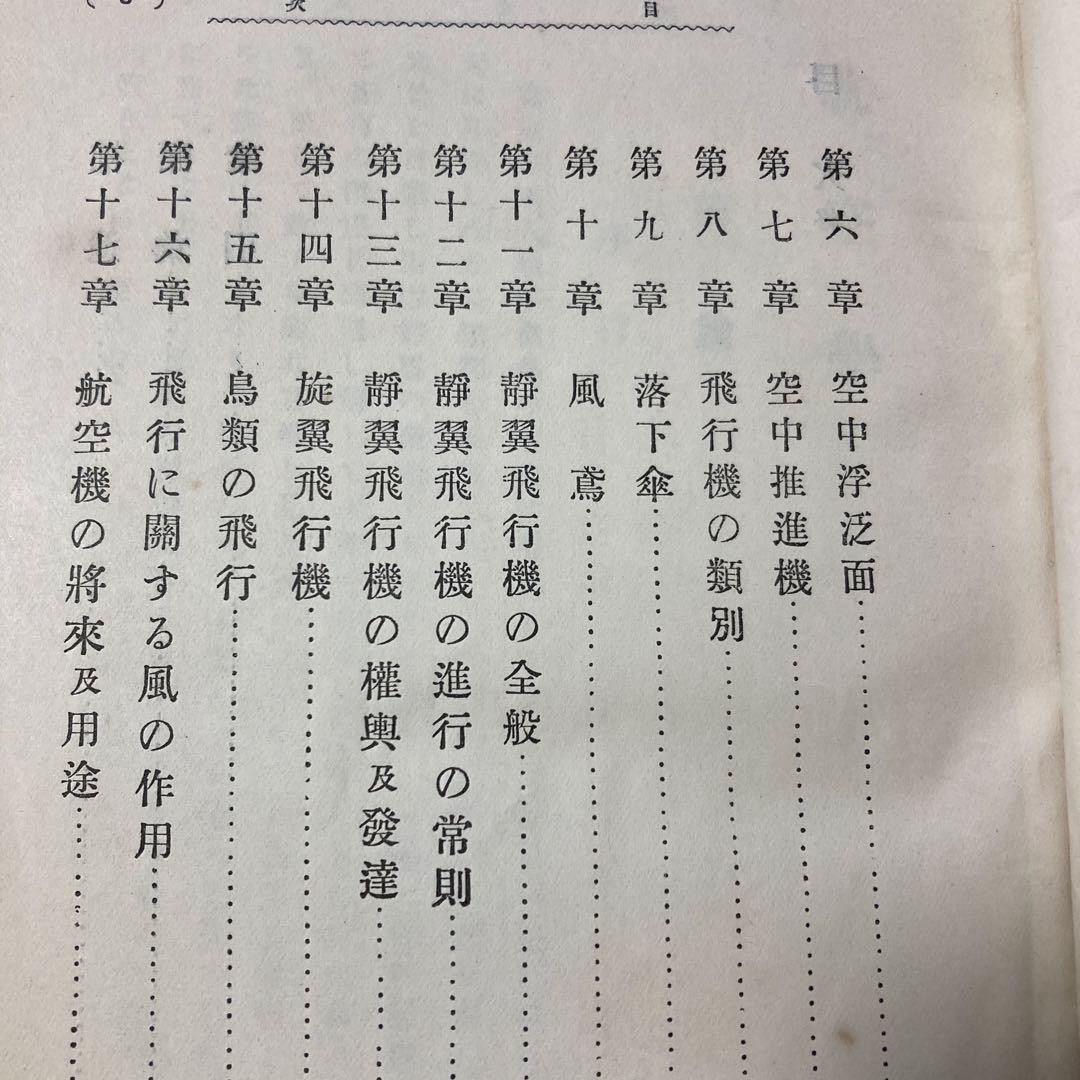 目次
第六章 空中浮泛面
第七章 空中推進機
第八章 飛行機の類別
第九章 落下傘
第十章 風鳶
第十一章 靜翼飛行機の全般
第十二章 靜翼飛行機の進行の常則
第十三章 靜翼飛行機の權輿及發達
第十四章 旋翼飛行機
第十五章 鳥類の飛行
第十六章 飛行に關する風の作用
第十七章 航空機の將來及用途